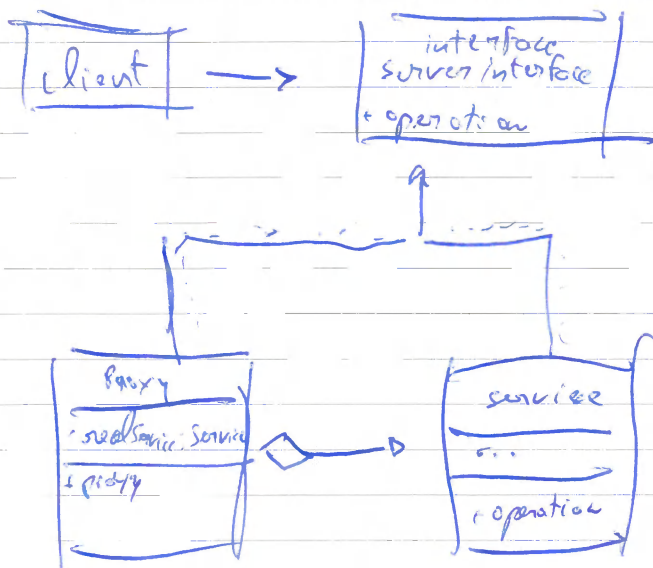 client
interface
server interface
+ operation
Proxy
- realService: Service
service
...
+ operation